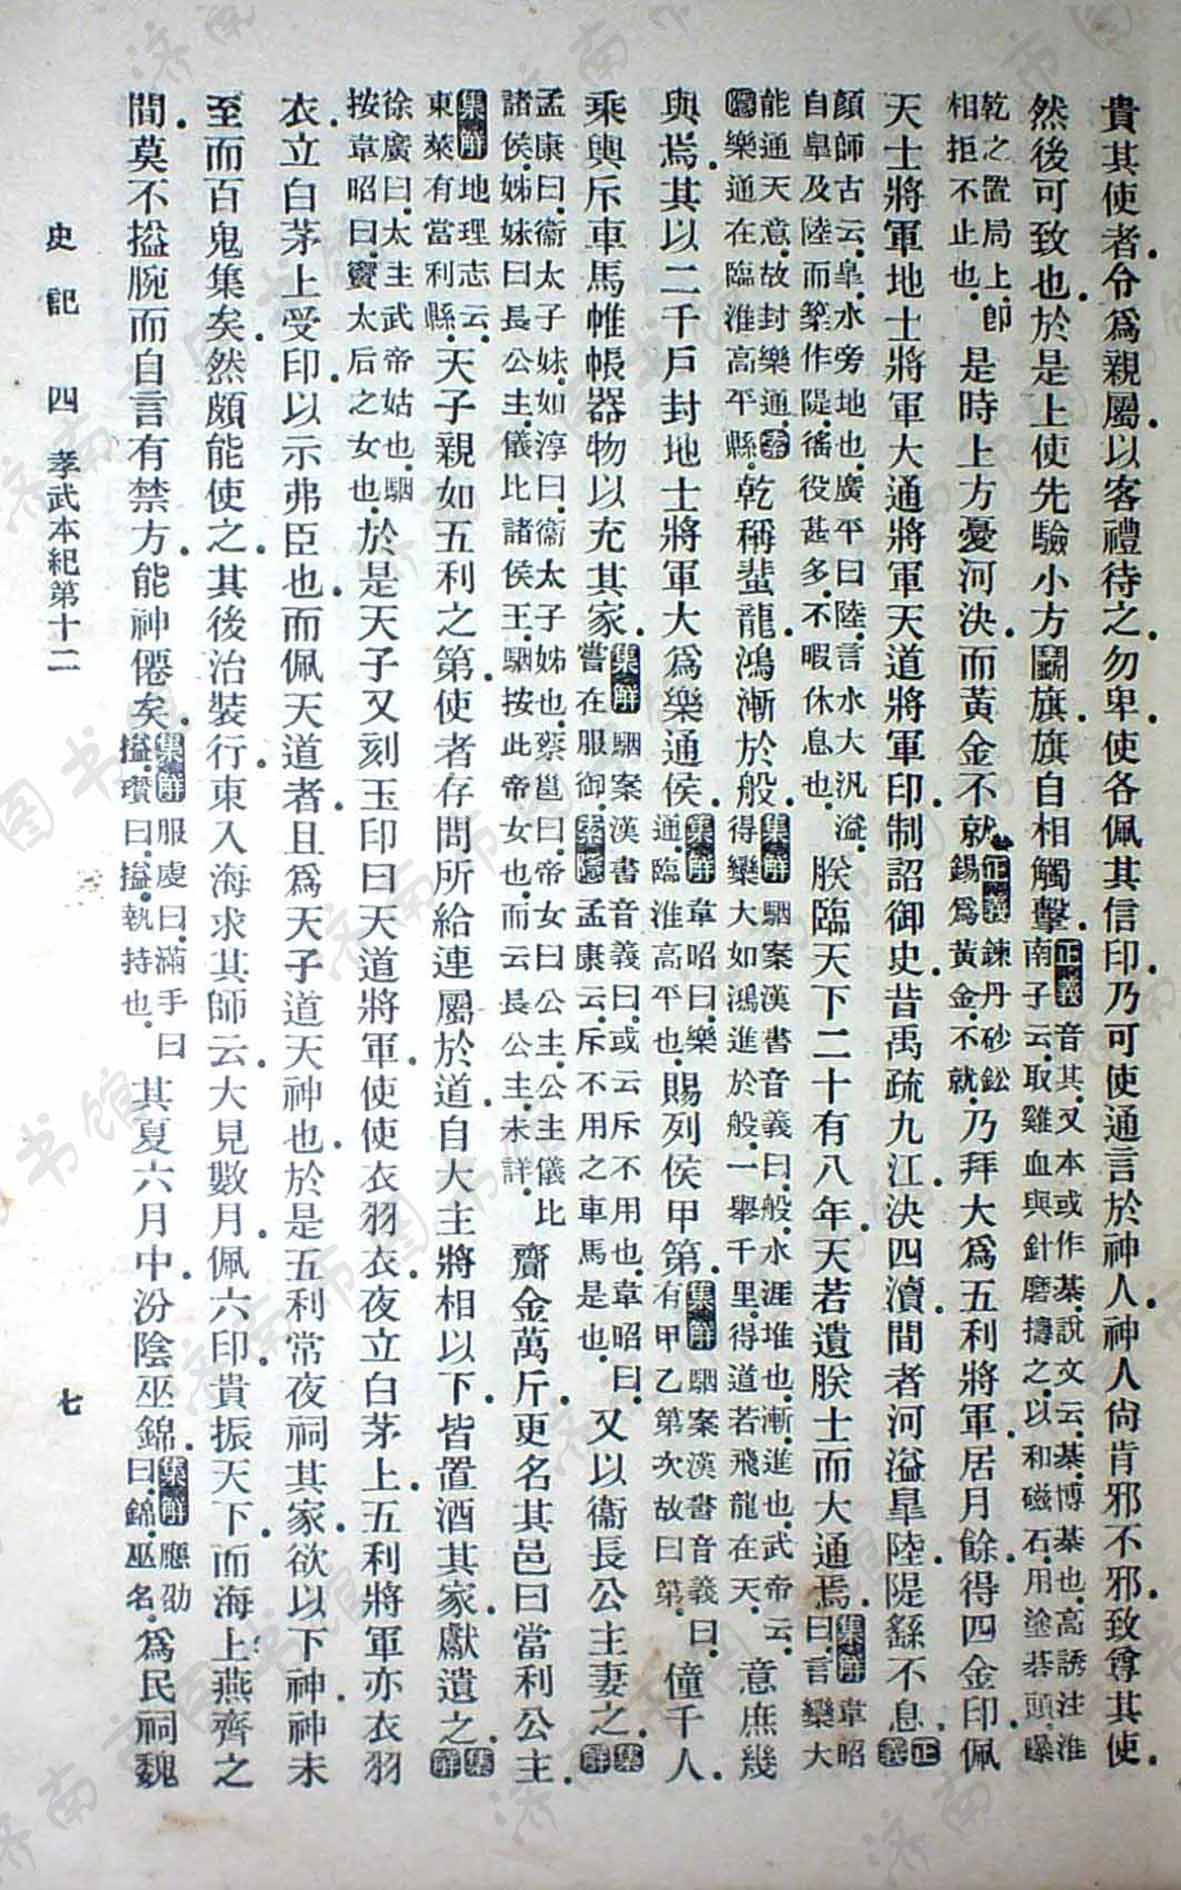 貴其使者。令爲親屬。以客禮待之。勿卑。使各佩其信印。乃可使通言於神人。神人尙肯邪不邪。致尊其使。
然後可致也。於是上使先驗小方。鬭旗。旗自相觸擊。正義音其。又本或作棊。說文云。棊。博棊也。高誘注淮南子云。取雞血與針磨擣之。以和磁石。用塗棊頭。曝
乾之置局上。卽相拒不止也。是時上方憂河決。而黃金不就。正義鍊丹砂鈆錫爲黃金。不就。乃拜大爲五利將軍。居月餘。得四金印。佩
天士將軍地士將軍大通將軍天道將軍印。制詔御史。昔禹疏九江。決四瀆。間者河溢皐陸。隄繇不息。正義
顏師古云。皐。水旁地也。廣平曰陸。言水大汎溢。自皐及陸而築作隄。徭役甚多。不暇休息也。朕臨天下二十有八年。天若遺朕士而大通焉。集解韋昭曰。言欒大
能通天意。故封樂通。索隱樂通在臨淮高平縣。乾稱蜚龍。鴻漸於般。集解駰案漢書音義曰。般。水涯堆也。漸。進也。武帝云。得欒大如鴻進於般。一舉千里。得道若飛龍在天。意庶幾
與焉。其以二千戶封地士將軍大爲樂通侯。集解韋昭曰。樂通。臨淮高平也。賜列侯甲第。集解駰案漢書音義曰。有甲乙第次故曰第。僮千人。
乘輿斥車馬帷帳器物以充其家。集解駰案漢書音義曰。或云斥不用也。韋昭曰。嘗在服御。索隱孟康云。斥不用之車馬是也。又以衞長公主妻之。集解
孟康曰。衞太子妹。如淳曰。衞太子姊也。蔡邕曰。帝女曰公主。公主儀比諸侯。姊妹曰長公主。儀比諸侯王。駰按此帝女也。而云長公主。未詳。齎金萬斤。更名其邑曰當利公主。
集解地理志云。東萊有當利縣。天子親如五利之第。使者存問所給連屬於道。自大主將相以下。皆置酒其家。獻遺之。集解
徐廣曰。太主武帝姑也。駰按韋昭曰。竇太后之女也。於是天子又刻玉印曰天道將軍。使使衣羽衣。夜立白茅上。五利將軍亦衣羽
衣。立白茅上受印。以示弗臣也。而佩天道者。且爲天子道天神也。於是五利常夜祠其家。欲以下神。神未
至而百鬼集矣。然頗能使之。其後治裝行。東入海求其師云。大見數月。佩六印。貴振天下。而海上燕齊之
間。莫不搤腕而自言有禁方。能神僊矣。集解服虔曰。滿手曰搤。瓚曰。搤。執持也。其夏六月中。汾陰巫錦。集解應劭曰。錦。巫名。爲民祠魏
史記 四 孝武本紀第十二 七